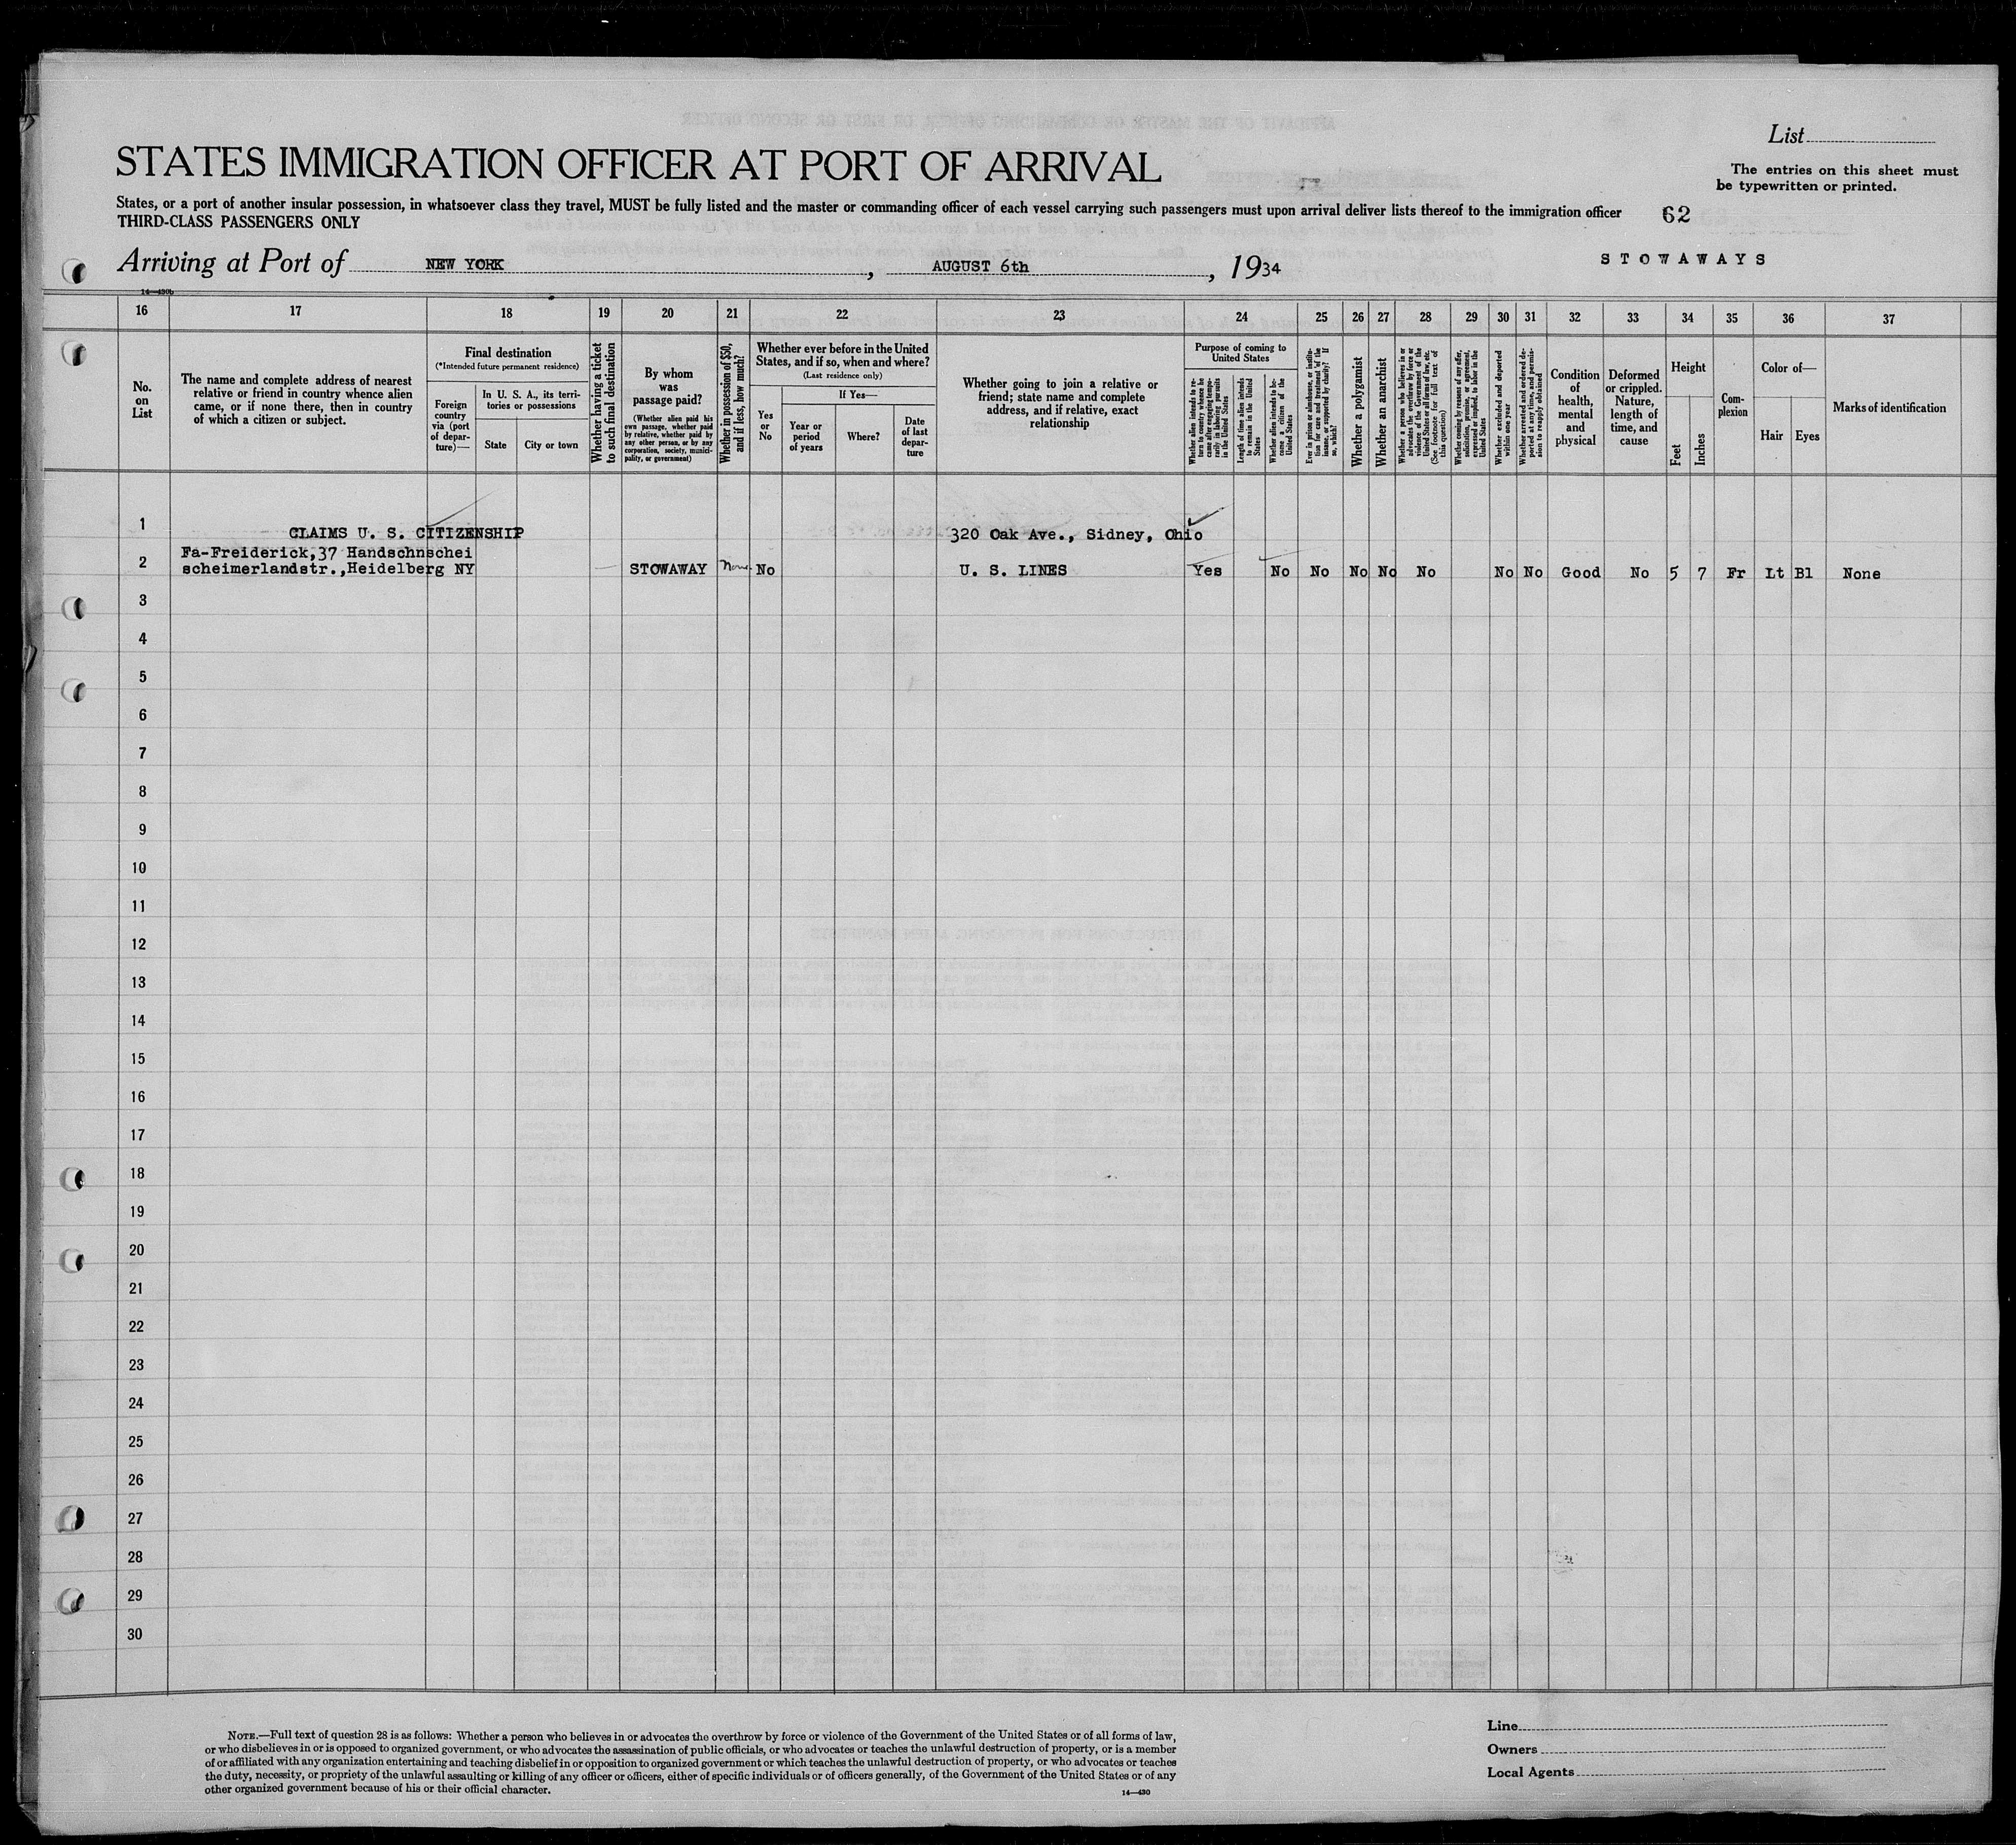 List
STATES IMMIGRATION OFFICER AT PORT OF ARRIVAL
The entries on this sheet must
be typewritten or printed.
States, or a port of another insular possession, in whatsoever class they travel, MUST be fully listed and the master or commanding officer of each vessel carrying such passengers must upon arrival deliver lists thereof to the immigration officer
62
THIRD-CLASS PASSENGERS ONLY
Arriving at Port of NEW YORK, AUGUST 6th, 1934
STOWAWAYS
14—430b
16 17 18 19 20 21 22 23 24 25 26 27 28 29 30 31 32 33 34 35 36 37
No.
on
List
The name and complete address of nearest
relative or friend in country whence alien
came, or if none there, then in country
of which a citizen or subject.
Final destination
(*Intended future permanent residence)
Foreign
country
via (port
of depar-
ture)—
In U. S. A., its terri-
tories or possessions
State
City or town
Whether having a ticket
to such final destination
By whom
was
passage paid?
(Whether alien paid his
own passage, whether paid
by relative, whether paid by
any other person, or by any
corporation, society, munici-
pality, or government)
Whether in possession of $50,
and if less, how much?
Whether ever before in the United
States, and if so, when and where?
(Last residence only)
Yes
or
No
If Yes—
Year or
period
of years
Where?
Date
of last
depar-
ture
Whether going to join a relative or
friend; state name and complete
address, and if relative, exact
relationship
Purpose of coming to
United States
Whether alien intends to re-
turn to country whence he
came after engaging tempo-
rarily in laboring pursuits
in the United States
Length of time alien intends
to remain in the United
States
Whether alien intends to be-
come a citizen of the
United States
Ever in prison or almshouse, or institu-
tion for care and treatment of the
insane, or supported by charity? If
so, which?
Whether a polygamist
Whether an anarchist
Whether a person who believes in or
advocates the overthrow by force or
violence of the Government of the
United States or all forms of law, etc.
(See footnote for full text of
this question)
Whether coming by reasons of any offer,
solicitation, promise, or agreement,
expressed or implied, to labor in the
United States
Whether excluded and deported
within one year
Whether arrested and ordered de-
ported at any time, and permis-
sion to reapply obtained
Condition
of
health,
mental
and
physical
Deformed
or crippled.
Nature,
length of
time, and
cause
Height
Feet
Inches
Com-
plexion
Color of—
Hair
Eyes
Marks of identification
1 CLAIMS U. S. CITIZENSHIP 320 Oak Ave., Sidney, Ohio
Fa-Freiderick,37 Handschnschei
2 scheimerlandstr.,Heidelberg NY STOWAWAY None No U. S. LINES Yes No No No No No No No Good No 5 7 Fr Lt Bl None
3
4
5
6
7
8
9
10
11
12
13
14
15
16
17
18
19
20
21
22
23
24
25
26
27
28
29
30
NOTE.—Full text of question 28 is as follows: Whether a person who believes in or advocates the overthrow by force or violence of the Government of the United States or of all forms of law,
or who disbelieves in or is opposed to organized government, or who advocates the assassination of public officials, or who advocates or teaches the unlawful destruction of property, or is a member
of or affiliated with any organization entertaining and teaching disbelief in or opposition to organized government or which teaches the unlawful destruction of property, or who advocates or teaches
the duty, necessity, or propriety of the unlawful assaulting or killing of any officer or officers, either of specific individuals or of officers generally, of the Government of the United States or of any
other organized government because of his or their official character.
14—430
Line
Owners
Local Agents